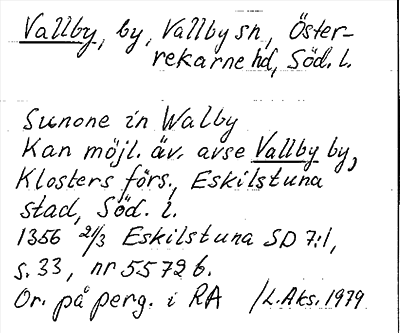 Vallby, by, Vallby sn, Öster-
rekarne hd, Söd. l.
Sunone in Walby
Kan möjl. äv. avse Vallby by,
Klosters förs., Eskilstuna
stad, Söd. l.
1356 21/3 Eskilstuna SD 7:1,
s. 33, nr 5572 b.
Or. på perg. i RA /L. Aks. 1979